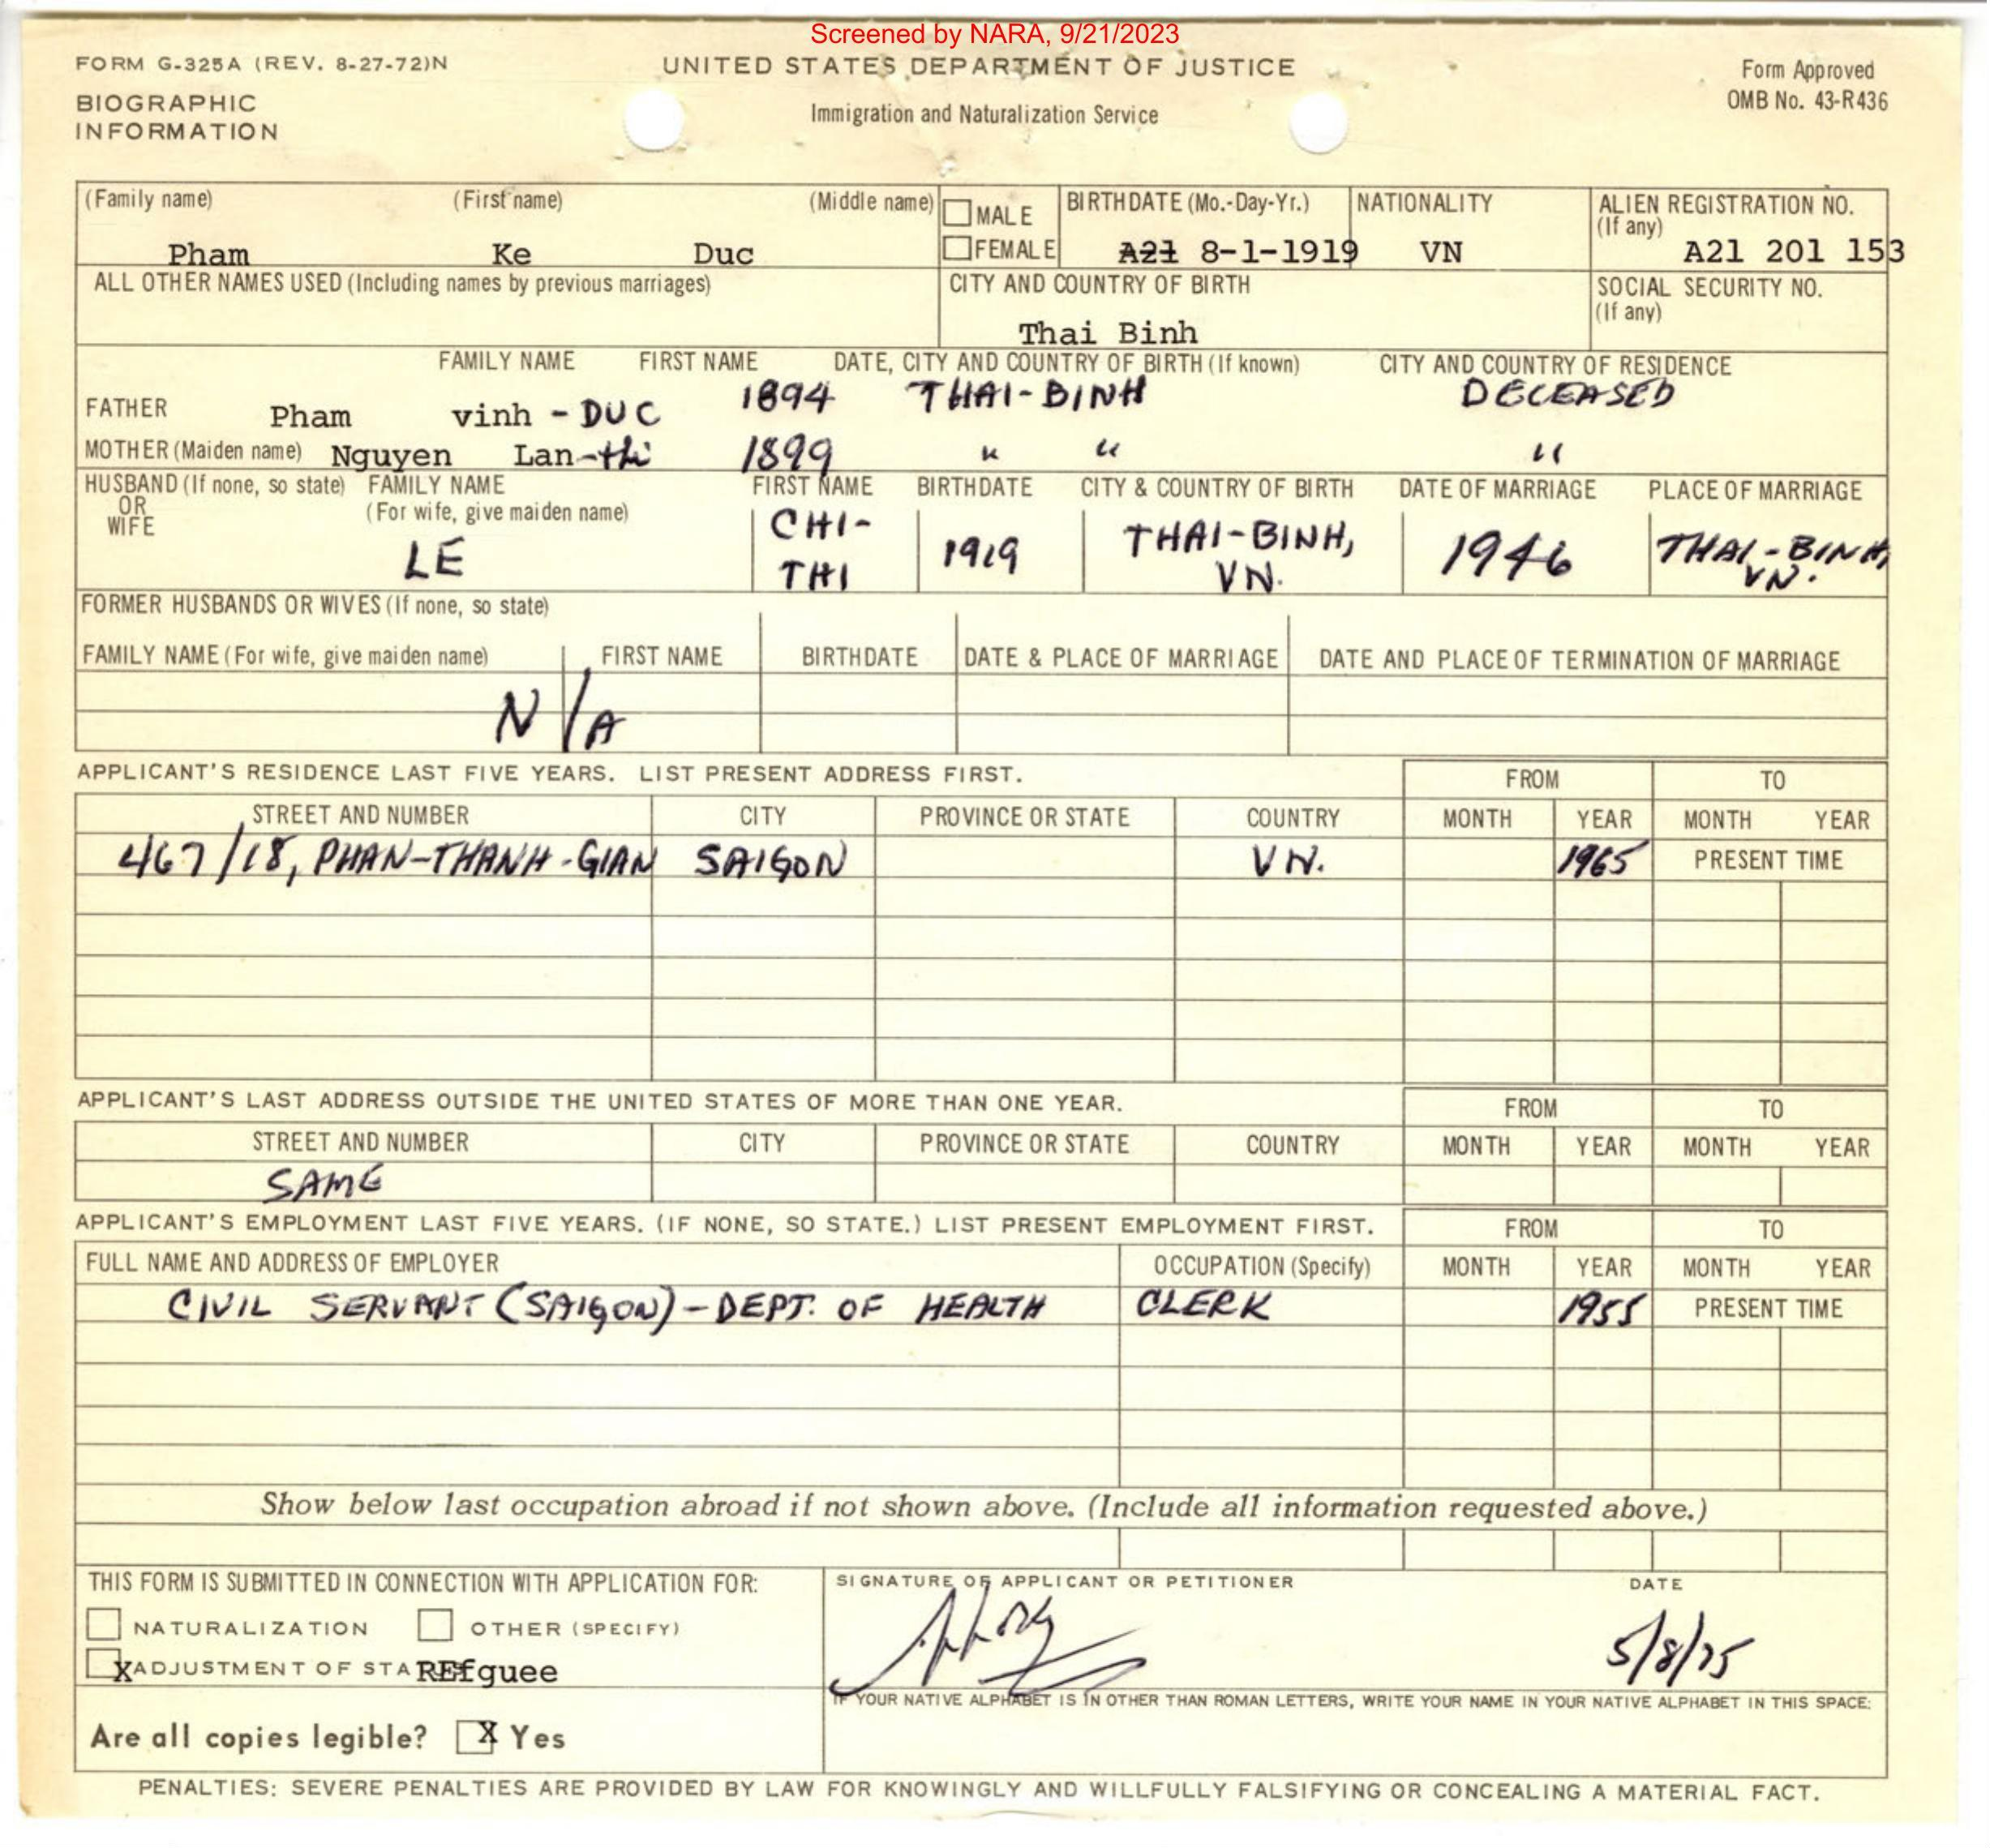 Screened by NARA, 9/21/2023
FORM G-325A (REV. 8-27-72)N
UNITED STATES DEPARTMENT OF JUSTICE
Form Approved
OMB No. 43-R436
BIOGRAPHIC
INFORMATION
Immigration and Naturalization Service
(Family name) (First name) (Middle name)
MALE
FEMALE
BIRTHDATE (Mo.-Day-Yr.)
NATIONALITY
ALIEN REGISTRATION NO.
(If any)
Pham Ke Duc
A21 8-1-1919
VN
A21 201 153
ALL OTHER NAMES USED (Including names by previous marriages)
CITY AND COUNTRY OF BIRTH
SOCIAL SECURITY NO.
(If any)
Thai Binh
FAMILY NAME FIRST NAME DATE, CITY AND COUNTRY OF BIRTH (If known) CITY AND COUNTRY OF RESIDENCE
FATHER Pham vinh - DUC 1894 THAI-BINH DECEASED
MOTHER (Maiden name) Nguyen Lan-thi 1899 " " "
HUSBAND (If none, so state) FAMILY NAME FIRST NAME BIRTHDATE CITY & COUNTRY OF BIRTH DATE OF MARRIAGE PLACE OF MARRIAGE
OR
WIFE
(For wife, give maiden name)
LE CHI-THI 1919 THAI-BINH, VN. 1946 THAI-BINH, VN.
FORMER HUSBANDS OR WIVES (If none, so state)
FAMILY NAME (For wife, give maiden name) FIRST NAME BIRTHDATE DATE & PLACE OF MARRIAGE DATE AND PLACE OF TERMINATION OF MARRIAGE
N/A
APPLICANT'S RESIDENCE LAST FIVE YEARS. LIST PRESENT ADDRESS FIRST. FROM TO
STREET AND NUMBER CITY PROVINCE OR STATE COUNTRY MONTH YEAR MONTH YEAR
467/18, PHAN-THANH-GIAN SAIGON VN. 1965 PRESENT TIME
APPLICANT'S LAST ADDRESS OUTSIDE THE UNITED STATES OF MORE THAN ONE YEAR. FROM TO
STREET AND NUMBER CITY PROVINCE OR STATE COUNTRY MONTH YEAR MONTH YEAR
SAME
APPLICANT'S EMPLOYMENT LAST FIVE YEARS. (IF NONE, SO STATE.) LIST PRESENT EMPLOYMENT FIRST. FROM TO
FULL NAME AND ADDRESS OF EMPLOYER OCCUPATION (Specify) MONTH YEAR MONTH YEAR
CIVIL SERVANT (SAIGON) - DEPT. OF HEALTH CLERK 1955 PRESENT TIME
Show below last occupation abroad if not shown above. (Include all information requested above.)
THIS FORM IS SUBMITTED IN CONNECTION WITH APPLICATION FOR:
NATURALIZATION OTHER (SPECIFY)
X ADJUSTMENT OF STA REfguee
SIGNATURE OF APPLICANT OR PETITIONER DATE
5/8/75
IF YOUR NATIVE ALPHABET IS IN OTHER THAN ROMAN LETTERS, WRITE YOUR NAME IN YOUR NATIVE ALPHABET IN THIS SPACE:
Are all copies legible? X Yes
PENALTIES: SEVERE PENALTIES ARE PROVIDED BY LAW FOR KNOWINGLY AND WILLFULLY FALSIFYING OR CONCEALING A MATERIAL FACT.